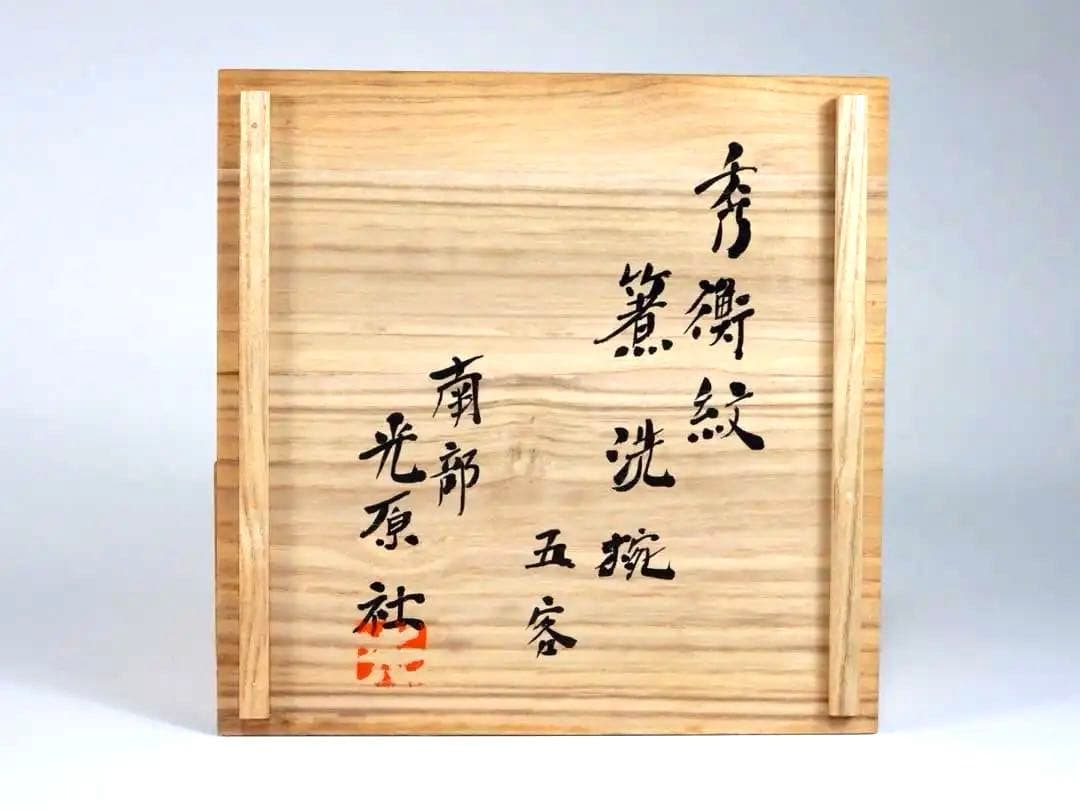 秀衡紋
箸洗椀
五客
南部
光原社